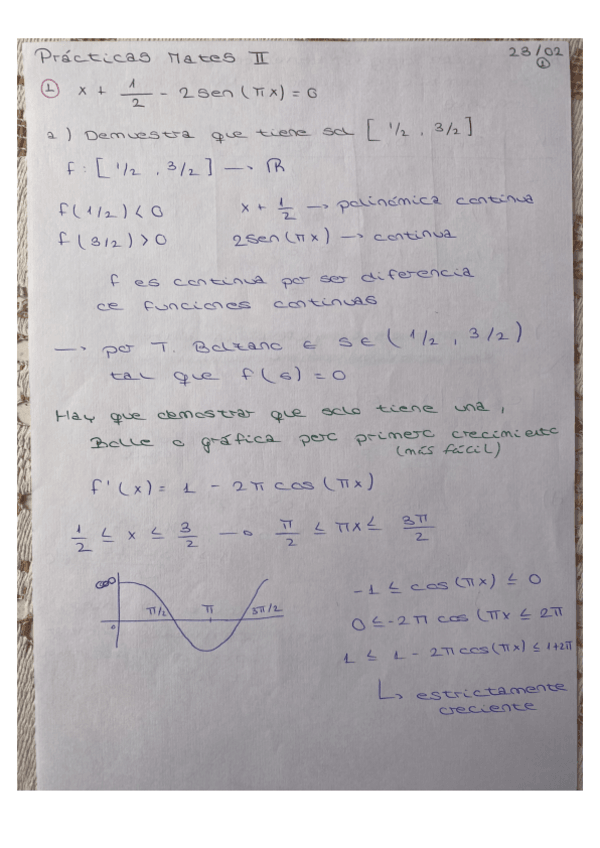 Prácticas Mates II
28/02
1
1 x + 1/2 - 2 sen (πx) = 0
a) Demuestra que tiene sol [1/2, 3/2]
f: [1/2, 3/2] → R
f(1/2) < 0 x + 1/2 → polinómica continua
f(3/2) > 0 2 sen(πx) → continua
f es continua por ser diferencia
de funciones continuas
→ por T. Bolzano ∈ s ∈ (1/2, 3/2)
tal que f(s) = 0
Hay que demostrar que solo tiene una,
Bolle o gráfica pero primero crecimiento
(más fácil)
f'(x) = 1 - 2π cos(πx)
1/2 ≤ x ≤ 3/2 → π/2 ≤ πx ≤ 3π/2
cos
π/2 π 3π/2
-1 ≤ cos(πx) ≤ 0
0 ≤ -2π cos (πx ≤ 2π
1 ≤ 1 - 2π cos(πx) ≤ 1+2π
↳ estrictamente
creciente